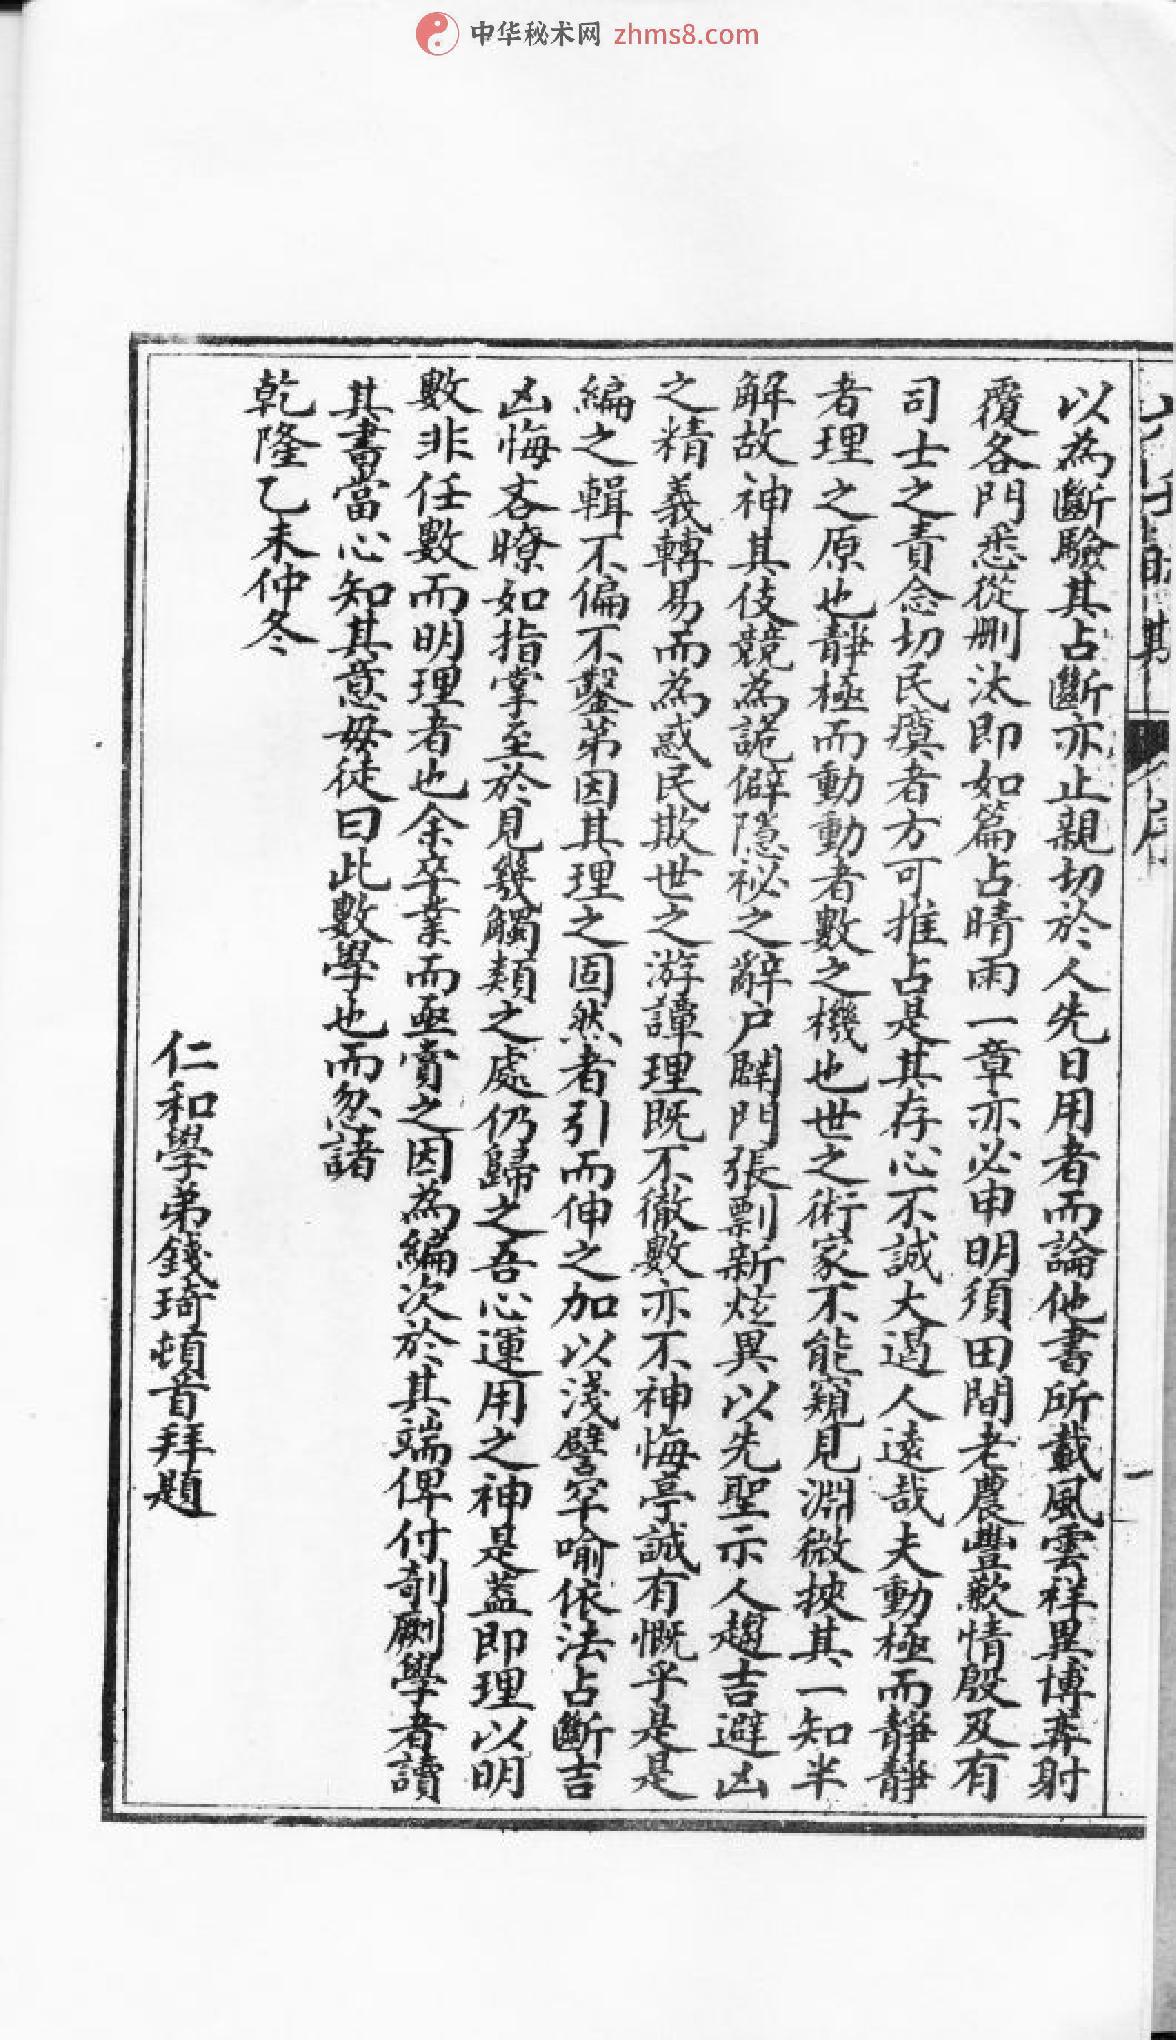 中华秘术网 zhms8.com
以為斷驗其占斷亦止親切於人先日用者而論他書所載風雲祥異博弈射
覆各門悉從刪汰即如篇占晴雨一章亦必申明須田間老農豐歉情殷及有
司士之責念切民瘼者方可推占是其存心不誠大過人遠哉夫動極而靜靜
者理之原也靜極而動動者數之機也世之術家不能窺見淵微挾其一知半
解故神其伎競為詭僻隱祕之辭户闢門張剽新炫異以先聖示人趨吉避凶
之精義轉易而為惑民欺世之游譚理既不徹數亦不神悔亭誠有慨乎是是
編之輯不偏不鑿第因其理之固然者引而伸之加以淺譬罕喻依法占斷吉
凶悔吝瞭如指掌至於見幾觸類之處仍歸之吾心運用之神是葢即理以明
數非任數而明理者也余卒業而亟賞之因為編次於其端俾付剞劂學者讀
其書當心知其意毋徒曰此數學也而忽諸
乾隆乙未仲冬
仁和學弟錢琦頓首拜題